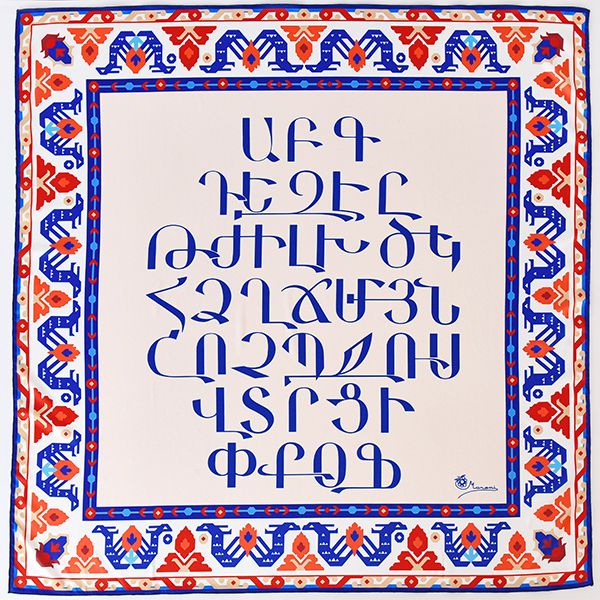 ԱԲԳ
ԴԵԶԷԸ
ԹԺԻԼԽԾԿ
ՀՁՂՃՄՅՆ
ՇՈՉՊՋՌՍ
ՎՏՐՑՒ
ՓՔՕՖ